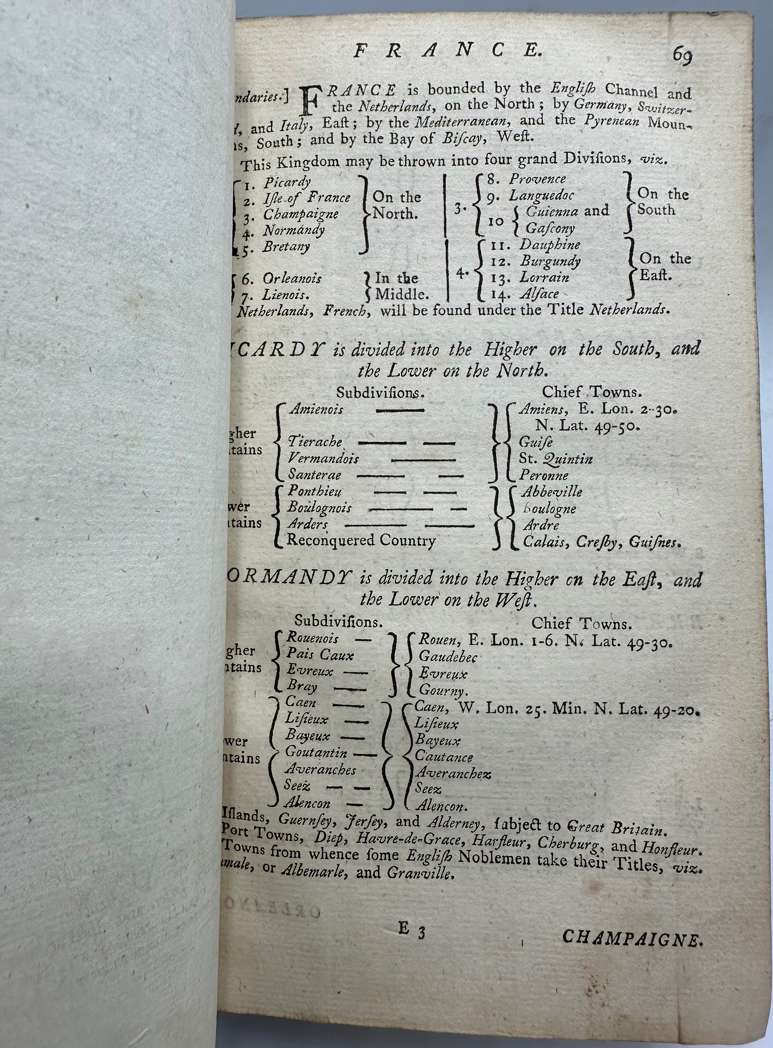 FRANCE. 69
ndaries.] FRANCE is bounded by the Engliſh Channel and
the Netherlands, on the North; by Germany, Switzer-
, and Italy, Eaſt; by the Mediterranean, and the Pyrenean Moun-
ns, South; and by the Bay of Biſcay, Weſt.
This Kingdom may be thrown into four grand Diviſions, viz.
1. Picardy
2. Iſle of France
3. Champaigne
4. Normandy
5. Bretany
On the
North.
6. Orleanois
7. Lienois.
In the
Middle.
3.
8. Provence
9. Languedoc
10 Guienna and
Gaſcony
On the
South
4.
11. Dauphine
12. Burgundy
13. Lorrain
14. Alſace
On the
Eaſt.
Netherlands, French, will be found under the Title Netherlands.
ICARDY is divided into the Higher on the South, and
the Lower on the North.
Subdiviſions. Chief Towns.
gher
tains
Amienois — Amiens, E. Lon. 2-30.
N. Lat. 49-50.
Tierache — — Guiſe
Vermandois — St. Quintin
Santerae — — Peronne
wer
tains
Ponthieu — — Abbeville
Boulognois — — Boulogne
Arders — — Ardre
Reconquered Country Calais, Creſby, Guiſnes.
ORMANDY is divided into the Higher on the Eaſt, and
the Lower on the Weſt.
Subdiviſions. Chief Towns.
gher
tains
Rouenois — Rouen, E. Lon. 1-6. N. Lat. 49-30.
Pais Caux Gaudebec
Evreux — Evreux
Bray — Gourny.
wer
ntains
Caen — Caen, W. Lon. 25. Min. N. Lat. 49-20.
Liſieux — Liſieux
Bayeux — Bayeux
Goutantin — Cautance
Averanches Averanchez
Seez — — Seez
Alencon — Alencon.
Iſlands, Guernſey, Jerſey, and Alderney, ſubject to Great Britain.
Port Towns, Diep, Havre-de-Grace, Harfleur, Cherburg, and Honfleur.
Towns from whence ſome Engliſh Noblemen take their Titles, viz.
male, or Albemarle, and Granville.
E 3 CHAMPAIGNE.